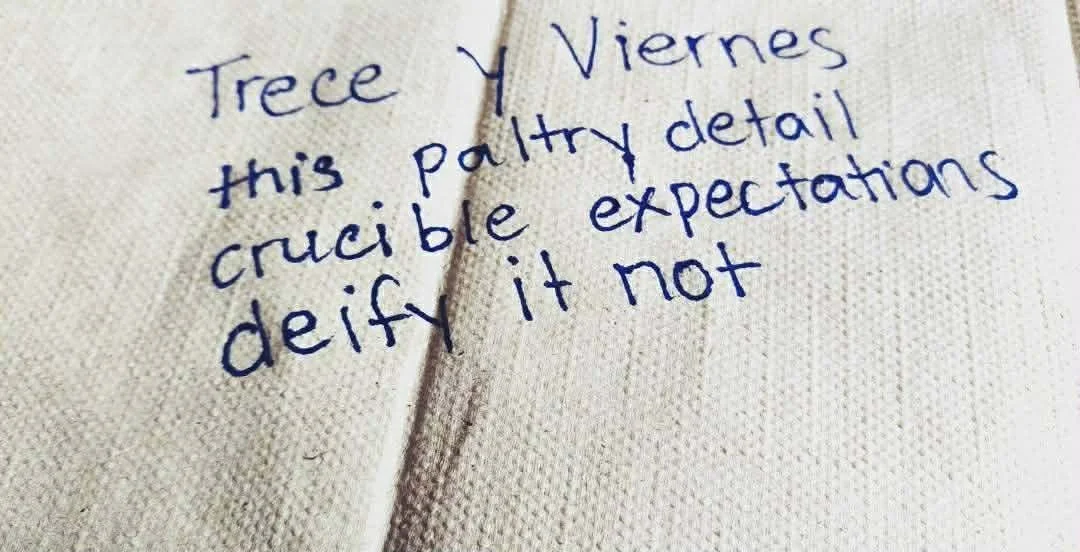 Trece y Viernes
this paltry detail
crucible expectations
deify it not